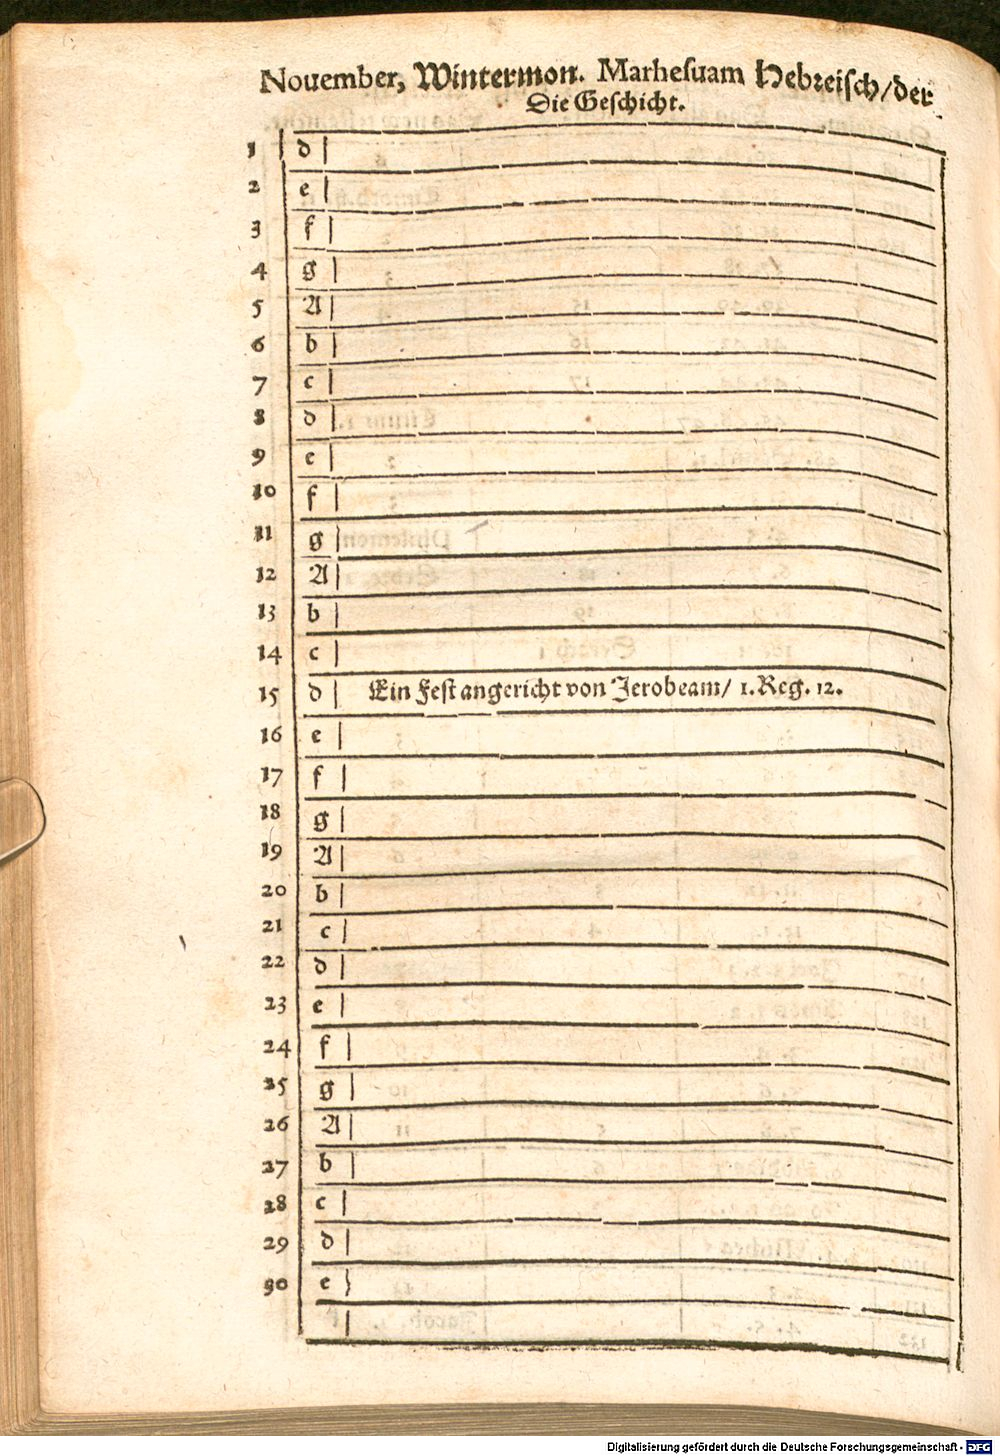 Nouember, Wintermon. Marhesuam Hebreisch/der
Die Geschicht.
1 d
2 e
3 f
4 g
5 A
6 b
7 c
8 d
9 e
10 f
11 g
12 A
13 b
14 c
15 d Ein Fest angericht von Jerobeam/ 1. Reg. 12.
16 e
17 f
18 g
19 A
20 b
21 c
22 d
23 e
24 f
25 g
26 A
27 b
28 c
29 d
30 e
Digitalisierung gefördert durch die Deutsche Forschungsgemeinschaft - DFG